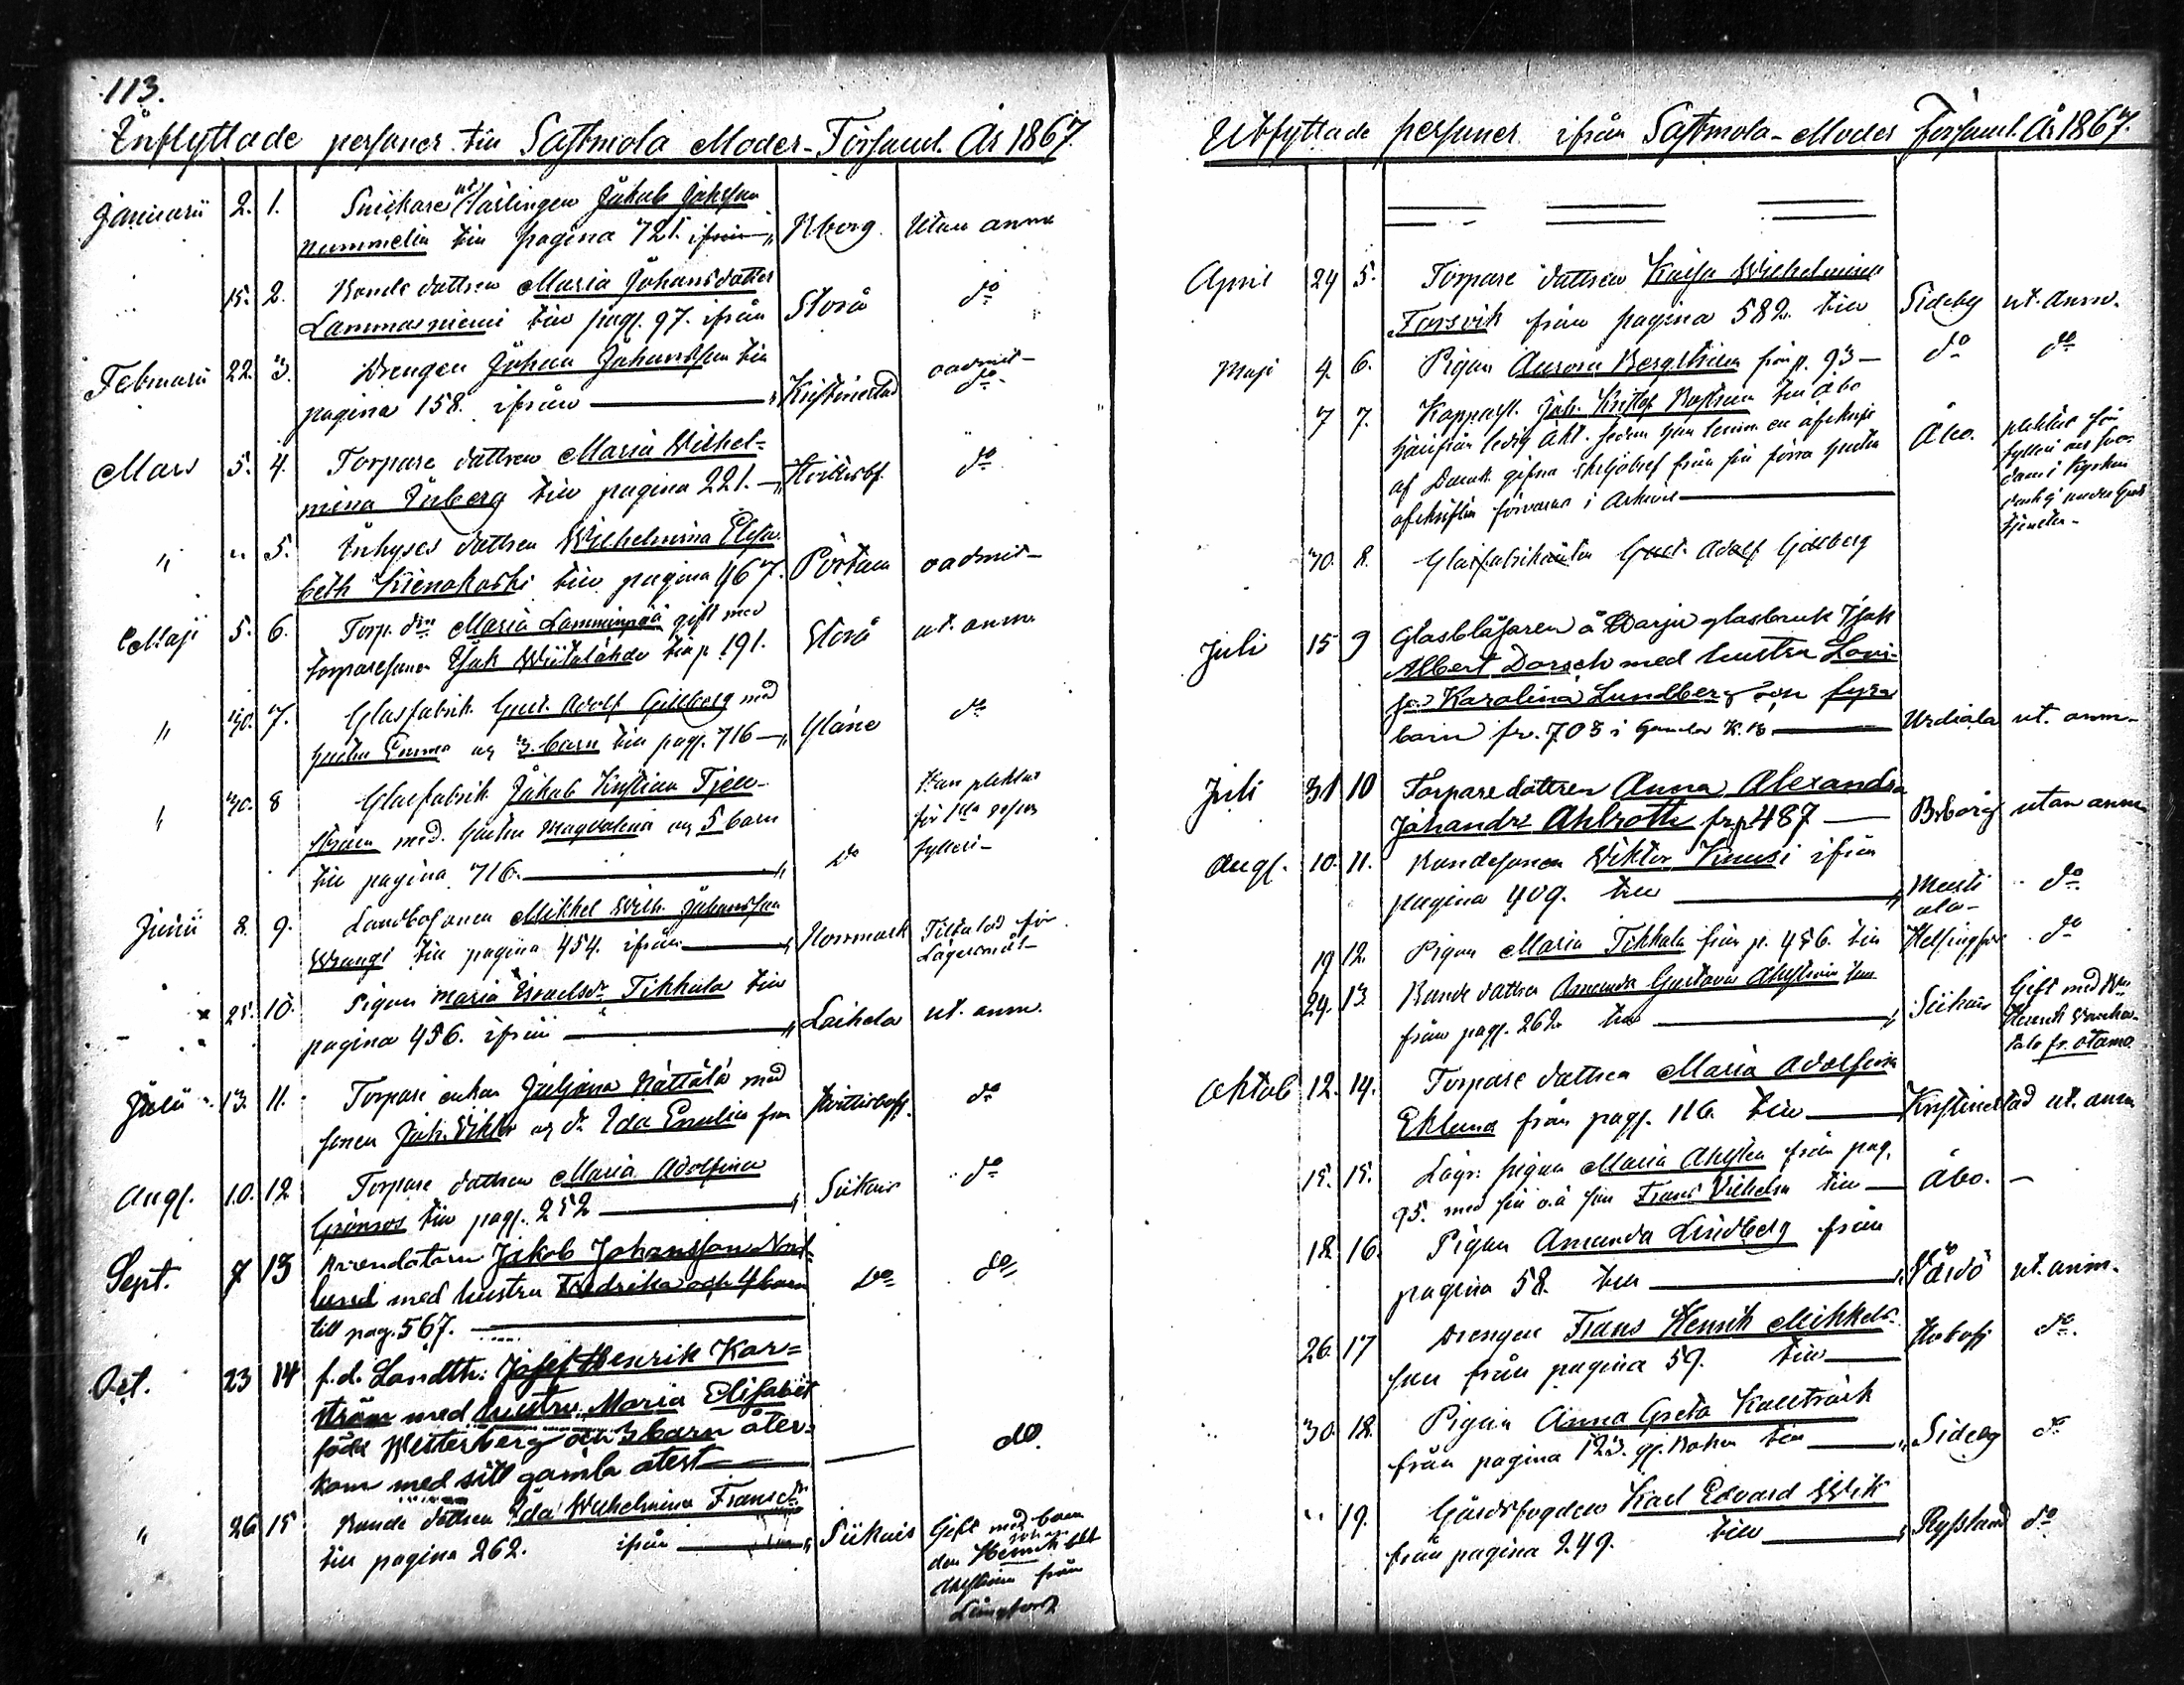 113.
Inflyttade personer till Sastmola Moder-Församl. År 1867.
Januarii 2. 1. Snickare Jakob Jakssson
Nummelin till pagina 721. ifrån Nborg. Utan anm
15. 2. Bonde dottren Maria Johansdotter
Lammasniemi till pag. 97. ifrån Storå do
Februarii 22. 3. Drengen Johan Johansson till
pagina 158. ifrån Kristinestad oadmit- do.
Mars 5. 4. Torpare dottren Maria Wilhel-
mina Inberg till pagina 221. Hvittisbf. do
" " 5. Inhyses dottren Wilhelmina Elisa
beth Kienokoski till pagina 467. Pörtom oadmit-
Maji 5. 6. Torp. dra Maria Lamminpää gift med
torparesonen Isak Wiitalähde till p. 191. Storå ut. anm
" 30. 7. Glasfabrik. Gust. Adolf Gillberg med
hustru Emma og 3. barn till pag. 716 Glåne do
" 30. 8 Glasfabrik. Jakob Kristian Tjeu-
ström med hustru Magdalena og 5 barn
till pagina 716. do
Han pliktat
för 1sta resan
fylleri-
Junii 8. 9. Landbosonen Mikkel Wilh. Johansson
Wrangi till pagina 454. ifrån Norrmark Tilltalad för
Lägersmål-
25. 10. Pigan Maria Israelsdr Tikkala till
pagina 456. ifrån Laihela ut. anm.
Julii 13. 11. Torpare enkan Juljana Nättälä med
sonen Joh. Viktor og dr Ida Emilia frn Hvittisboff. do
Augs. 10. 12 Torpare dottren Maria Adolfina
Grönroos till pag. 252 Siikais do
Sept. 7 13 Arrendatorn Jakob Johansson Nord-
lund med hustru Fredrika och 4 barn
till pag. 567. do do
Oct. 23 14 f.d. Landth: Josef Henrik Kar=
ström med hustru Maria Elisabet
född Westerberg och 3 barn åter-
kom med sitt gamla atest do.
" 26 15 Bonde dottren Ida Wilhelmina Fransdr
till pagina 262. ifrån Siikais Gift med bon
den Henrik
från
Utflyttade personer ifrån Sastmola-Moder Församl. År 1867.
April 24 5. Torpare dottren Kaisa Wilhelmina
Forsvik från pagina 582. till Sideby ut. anm.
Maji 4. 6. Pigan Aurora Bergström från p. 93 do do
7 7. Kopparsl. Joh. Kristof Boström till Åbo
härifrån ledig Akt. sedan han lemn. en afskrift
af Domk. gifna skiljobref från sin förra hustru
afskriften förvaras i Arkivet Åbo.
pliktat för
fylleri
dom i kyrkan
under Guds
tjensten-
30. 8. Glasfabrikanten Gust. Adolf Gillberg
Juli 15 9 Glasblåsaren å Warju glasbruk Isak
Albert Dorsch med hustru Lovi-
sa Karolina Lundberg och fyra
barn fr. 703 i Gamla K.B. Urdiala ut. anm-
Juli 31 10 Torparedottren Anna Alexandra
Johandr Ahlroth fr.p 487 Bsborg utan anm
Augs. 10. 11. Bondesonen Wiktor Knuusi ifrån
pagina 409. till Musti
ala- do
19 12. Pigan Maria Tikkala från p. 456. till Helsingfors do
29. 13 Bonde dottren Amanda Gustava Ahlström
från pag. 262 till Siikais Gift med
Henrik
fr. Otamo
Oktob 12. 14. Torpare dottren Maria Adolfina
Eklund från pag. 116. till Kristinestad ut. anm
15. 15. Lägr. pigan Maria Ahlsten från pag.
95. med sin o.ä son Frans Vilhelm till Åbo. -
18. 16. Pigan Amanda Lindberg från
pagina 58. till Vårdö ut. anm.
26. 17 Drengen Frans Henrik Mikkels-
son från pagina 59. till Hvbofj do.
30. 18. Pigan Anna Greta Kallträsk
från pagina 123. gl. Boken till Sideby do
" 19. Gårdsfogden Karl Edvard Wik
från pagina 249. till Ryssland do